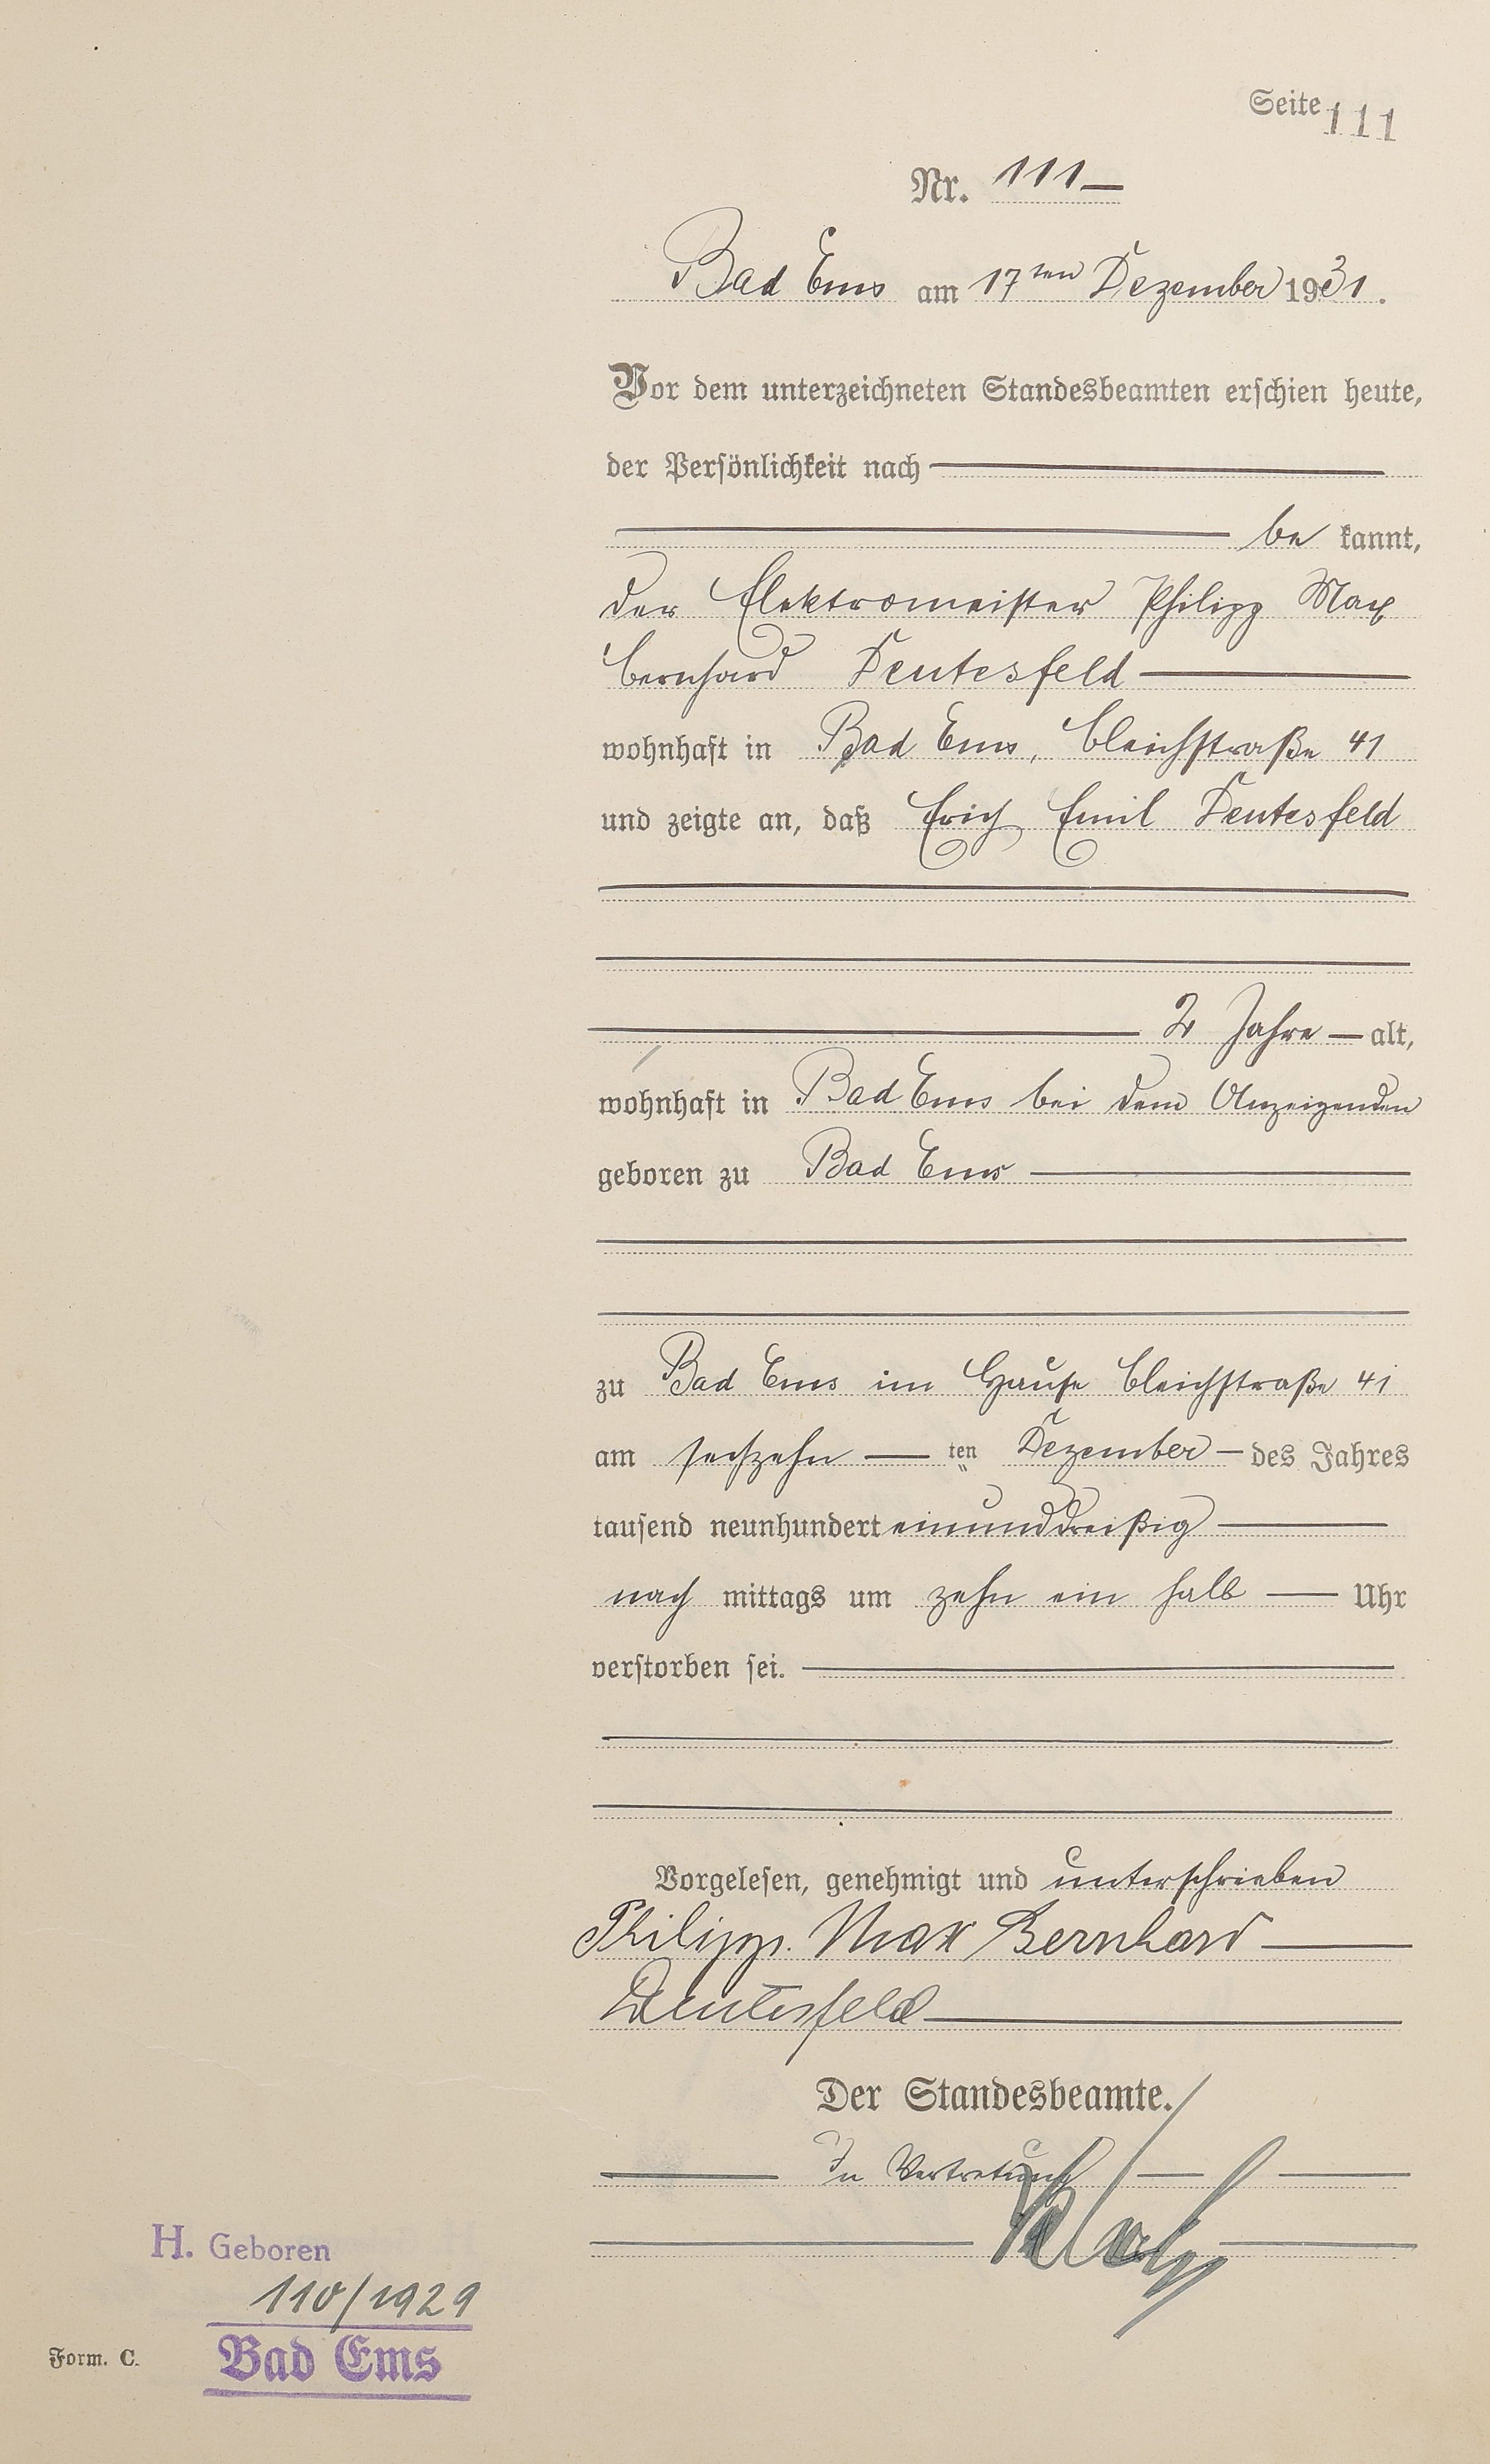 Seite 111
Nr. 111
Bad Ems am 17ten Dezember 1931.
Vor dem unterzeichneten Standesbeamten erschien heute,
der Persönlichkeit nach
be kannt,
der Elektromeister Philipp Max
Bernhard Deutesfeld
wohnhaft in Bad Ems, Bleichstraße 41
und zeigte an, daß Erich Emil Deutesfeld
2 Jahre alt,
wohnhaft in Bad Ems bei dem Anzeigenden
geboren zu Bad Ems
zu Bad Ems im Hause Bleichstraße 41
am sechzehn ten Dezember des Jahres
tausend neunhundert einunddreißig
nach mittags um zehn ein halb Uhr
verstorben sei.
Vorgelesen, genehmigt und unterschrieben
Philipp Max Bernhard
Deutesfeld
Der Standesbeamte.
In Vertretung
H. Geboren
110/1929
Bad Ems
Form. C.